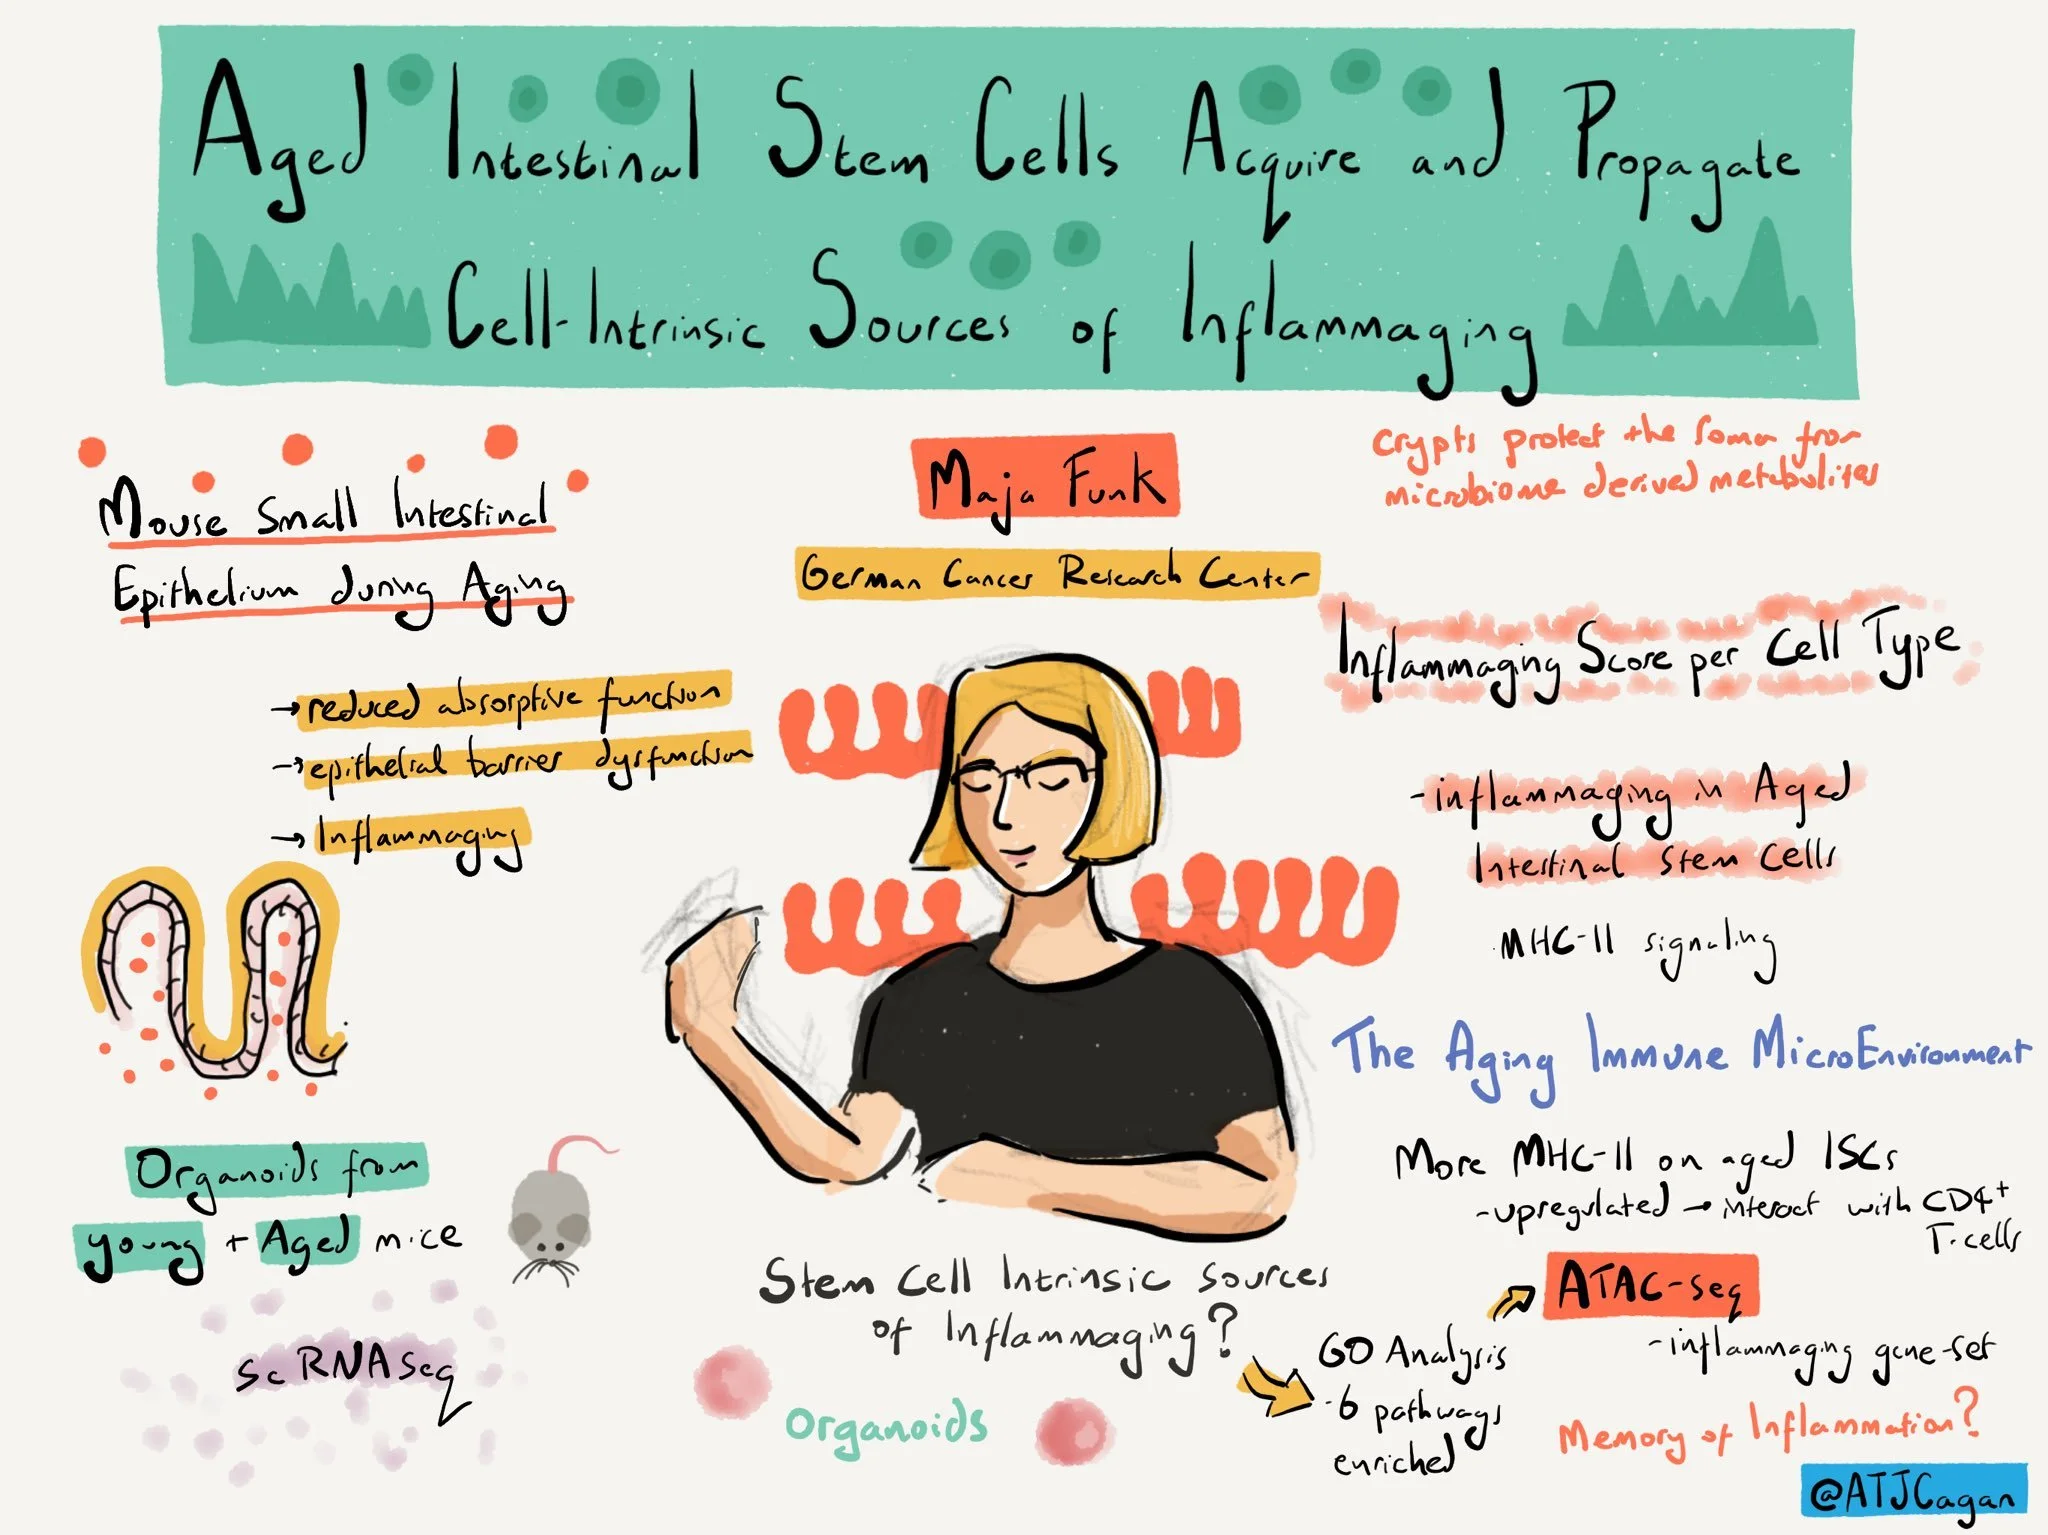 Aged Intestinal Stem Cells Acquire and Propagate
Cell-Intrinsic Sources of Inflammaging
Mouse Small Intestinal
Epithelium during Aging
→ reduced absorptive function
→ epithelial barrier dysfunction
→ Inflammaging
Organoids from
young + Aged mice
scRNAseq
Maja Funk
German Cancer Research Center
Stem Cell Intrinsic sources
of Inflammaging?
Organoids
Crypts protect the soma from
microbiome derived metabolites
Inflammaging Score per Cell Type
- inflammaging in Aged
Intestinal stem cells
MHC-II signaling
The Aging Immune MicroEnvironment
More MHC-II on aged ISCs
- upregulated → interact with CD4+
T-cells
GO Analysis
- 6 pathways
enriched
ATAC-seq
- inflammaging gene-set
Memory of Inflammation?
@ATJCagan